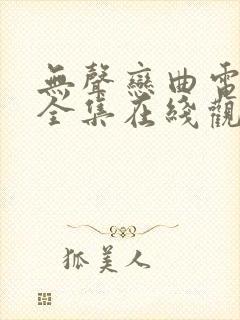 無聲戀曲電
全集在綫觀
狐美人